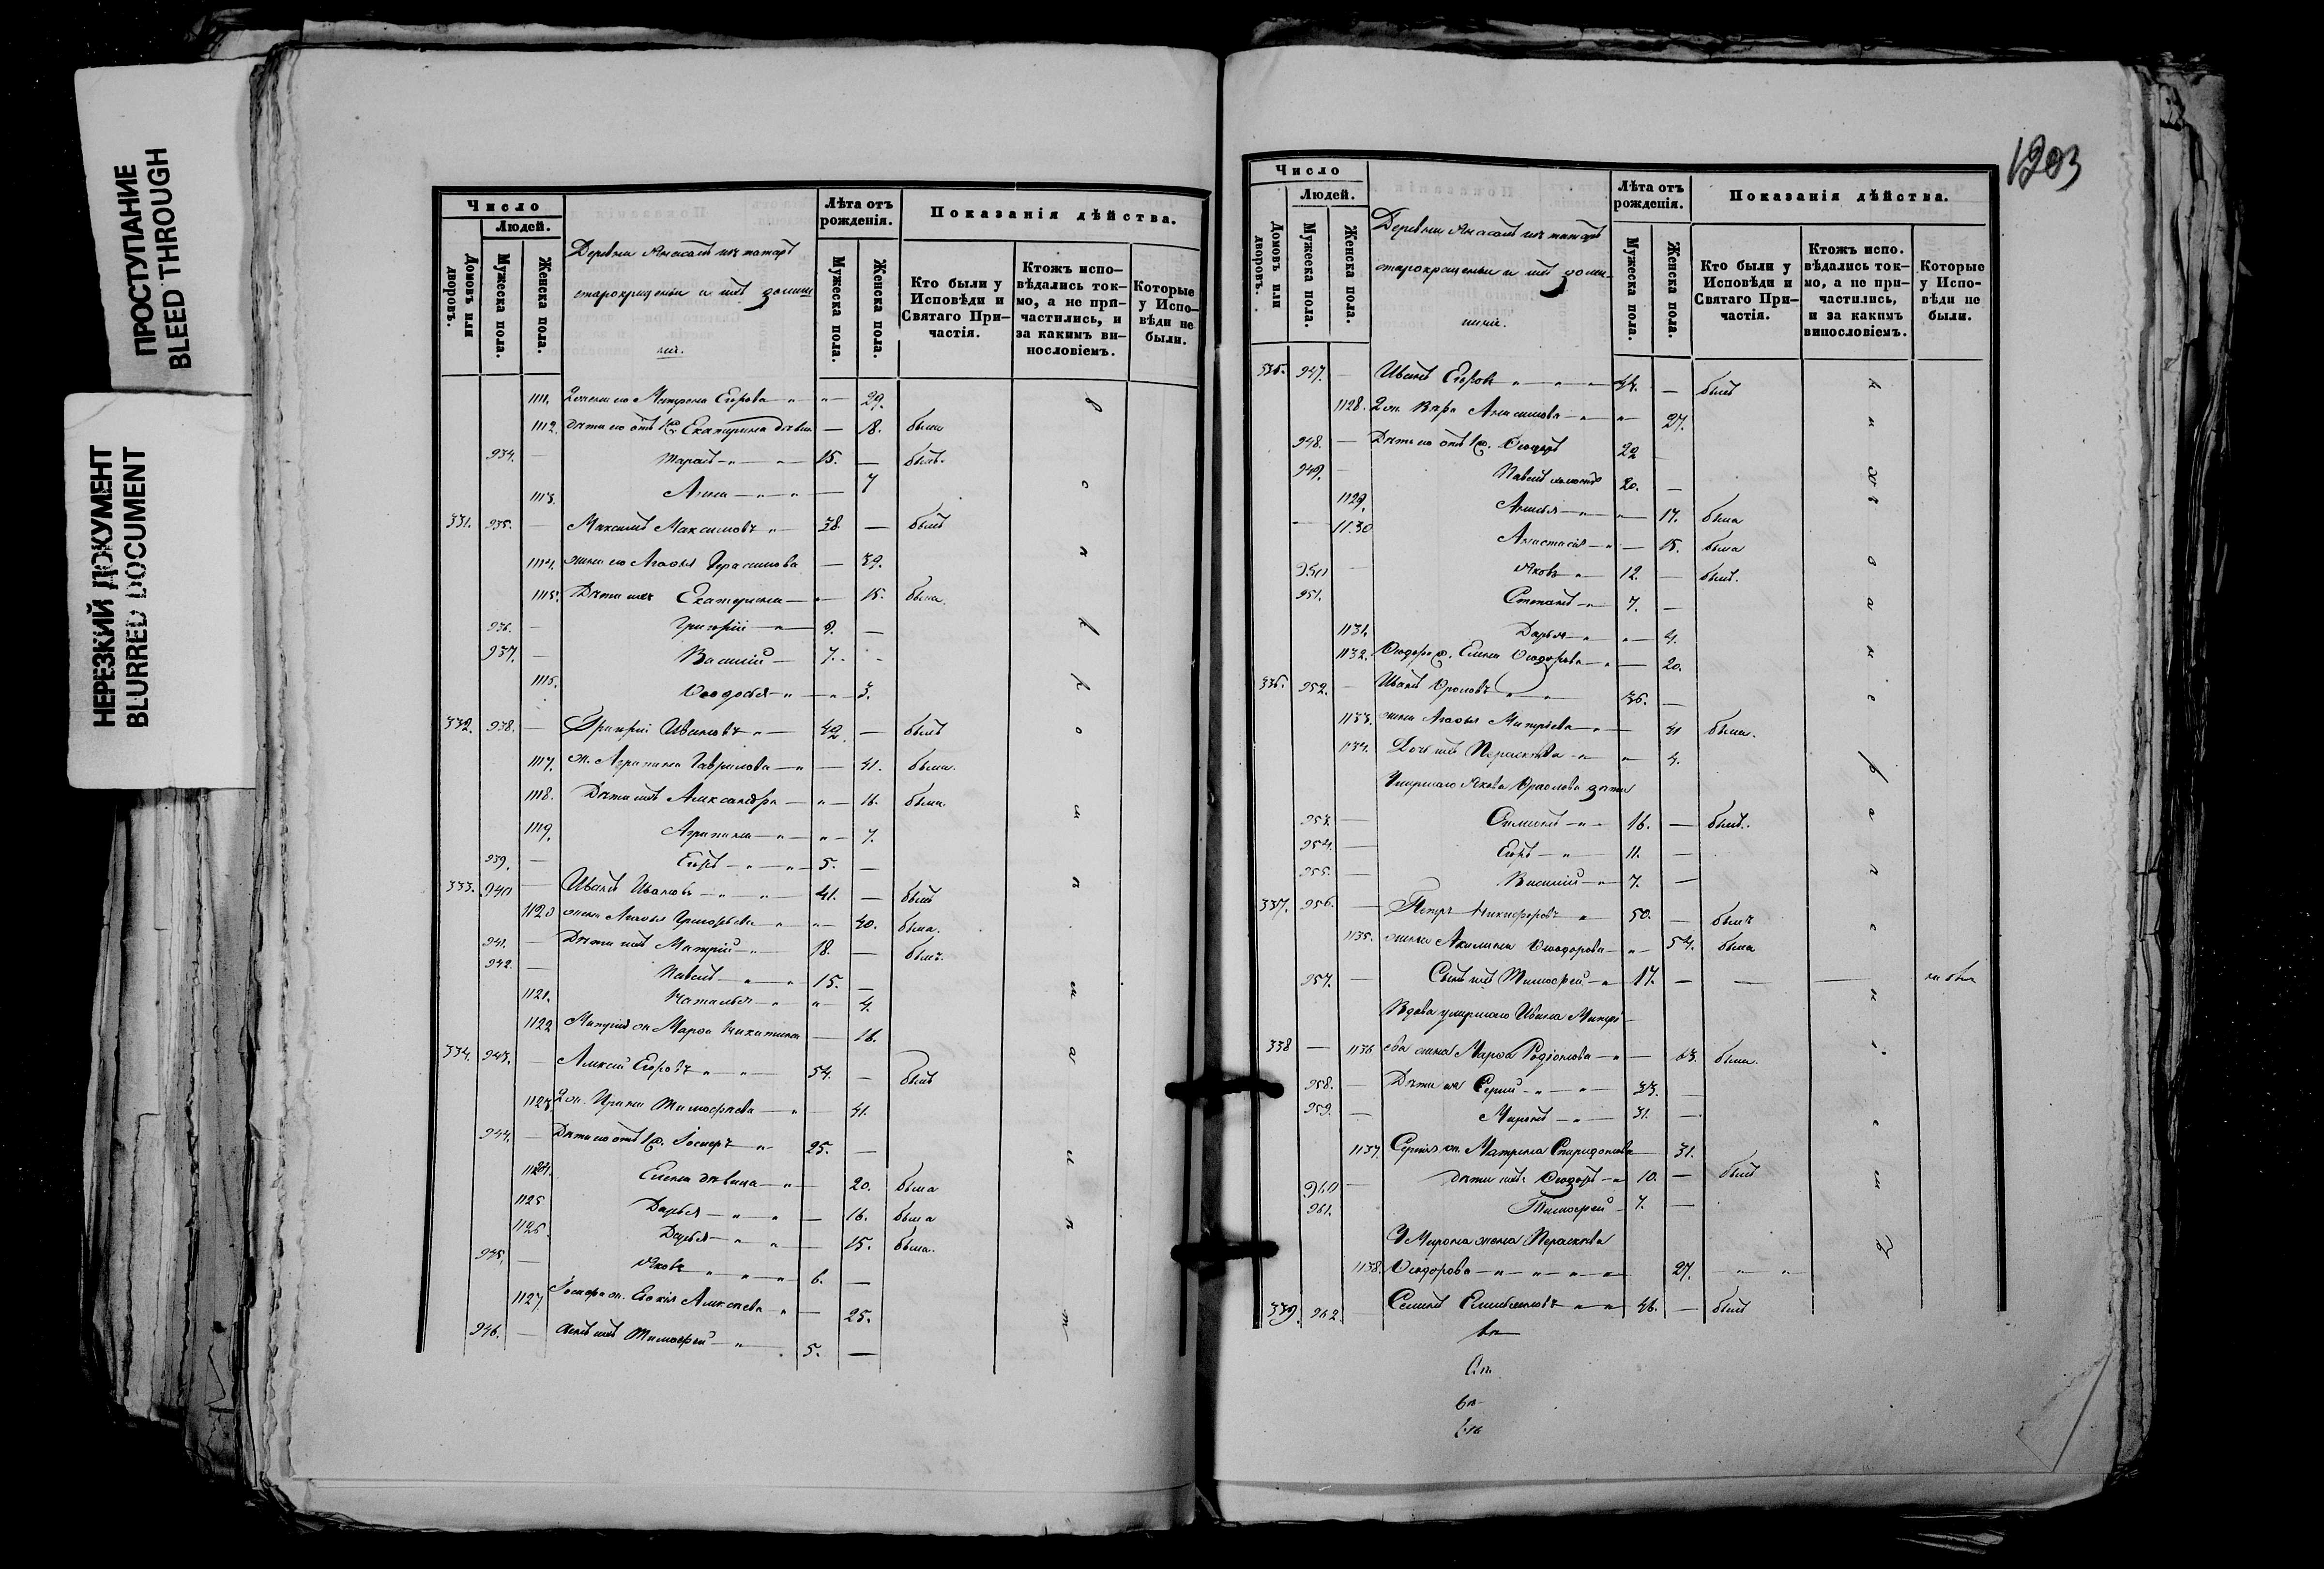 ПРОСТУПАНИЕ
BLEED THROUGH
НЕРЕЗКИЙ ДОКУМЕНТ
BLURRED DOCUMENT
Число
Людей.
Домовъ или дворовъ.
Мужеска пола.
Женска пола.
Лѣта отъ рожденія.
Мужеска пола.
Женска пола.
Показанія дѣйства.
Кто были у Исповѣди и Святаго При-частія.
Ктожъ испо-вѣдались ток-мо, а не при-частились, и за какимъ ви-нословіемъ.
Которые у Испо-вѣди не были.
Деревни изъ татаръ
старокрещены и ихъ домаш
ніе.
1111. 2 жена его Матрена Егорова 29.
1112. дѣти его отъ 1й Екатерина дѣвка 18. была
934. Тарасъ 15. былъ.
1113. Анна 7
331. 935. Максимъ Максимовъ 38. былъ
1114. жена его Агафья Герасимова 39.
1115. Дѣти ихъ Екатерина 15. была.
936. Григорій 9.
937. Василій 7.
1116. Ѳеодосья 3.
332. 938. Григорій Ивановъ 42. былъ
1117. ж. Агрипина Гаврилова 41. была.
1118. Дѣти ихъ Александра 16. была.
1119. Агрипина 7.
939. Егоръ 5.
333. 940 Иванъ Ивановъ 41. былъ
1120 жена Агафья Григорьева 40. была.
941. Дѣти ихъ Митрій 18. былъ.
942. Павелъ 15.
1121. Наталья 4.
1122 Митрія ж. Марѳа Никитина 16.
334. 943. Алексій Егоровъ 54. былъ
1123. 2 ж. Ирина Тимоѳеева 41.
944. Дѣти его отъ 1й. Іосифъ 25.
1124. Елена дѣвица 20. была
1125 Дарья 16. была
1126. Дарья 15. была.
945. Яковъ 6.
1127 Іосифа ж. Евокія Алексеева 25.
946. Сынъ ихъ Тимоѳей 5.
1203
Число
Людей.
Домовъ или дворовъ.
Мужеска пола.
Женска пола.
Лѣта отъ рожденія.
Мужеска пола.
Женска пола.
Показанія дѣйства.
Кто были у Исповѣди и Святаго При-частія.
Ктожъ испо-вѣдались ток-мо, а не при-частились, и за какимъ винословіемъ.
Которые у Испо-вѣди не были.
Деревни изъ татаръ
старокрещены и ихъ дома-
шніе.
947. Иванъ Егоровъ 44. былъ
1128. 2 ж. Вѣра Анисимова 27.
948. Дѣти его отъ 1й. Ѳеодоръ 22
949. Павелъ 20.
1129. Анисья 17. была
1130 Анастасія 15. была
950 Яковъ 12. былъ.
951. Степанъ 7.
1131. Дарья 4.
1132. Ѳеодора ж. Елена Ѳеодорова 20.
336. 952. Иванъ Фроловъ 36.
1133. жена Агафья Митріева 41 была.
1134. Дочь ихъ Параскева 4.
Умершаго Якова дѣти
953. 16. былъ.
954. Егоръ 11.
955. Василій 7.
337. 956. Петръ Никифоровъ 50. былъ
1135. жена Акилина Ѳеодорова 54. была
957. Сынъ ихъ Тимоѳей 17. не былъ
Вдова умершаго Ивана Митрі-
338 1136 ева жена Марѳа Родіонова 63. была.
958. Дѣти ея Сергій 33.
959. Миронъ 31.
1137. Сергія ж. Матрена Спиридонова 31.
960 дѣти ихъ Ѳеодоръ 10. былъ
961. Тимоѳей 7.
У Мирона жена Параскева
1138. Ѳеодорова 27.
339. 962. Семенъ 46. былъ